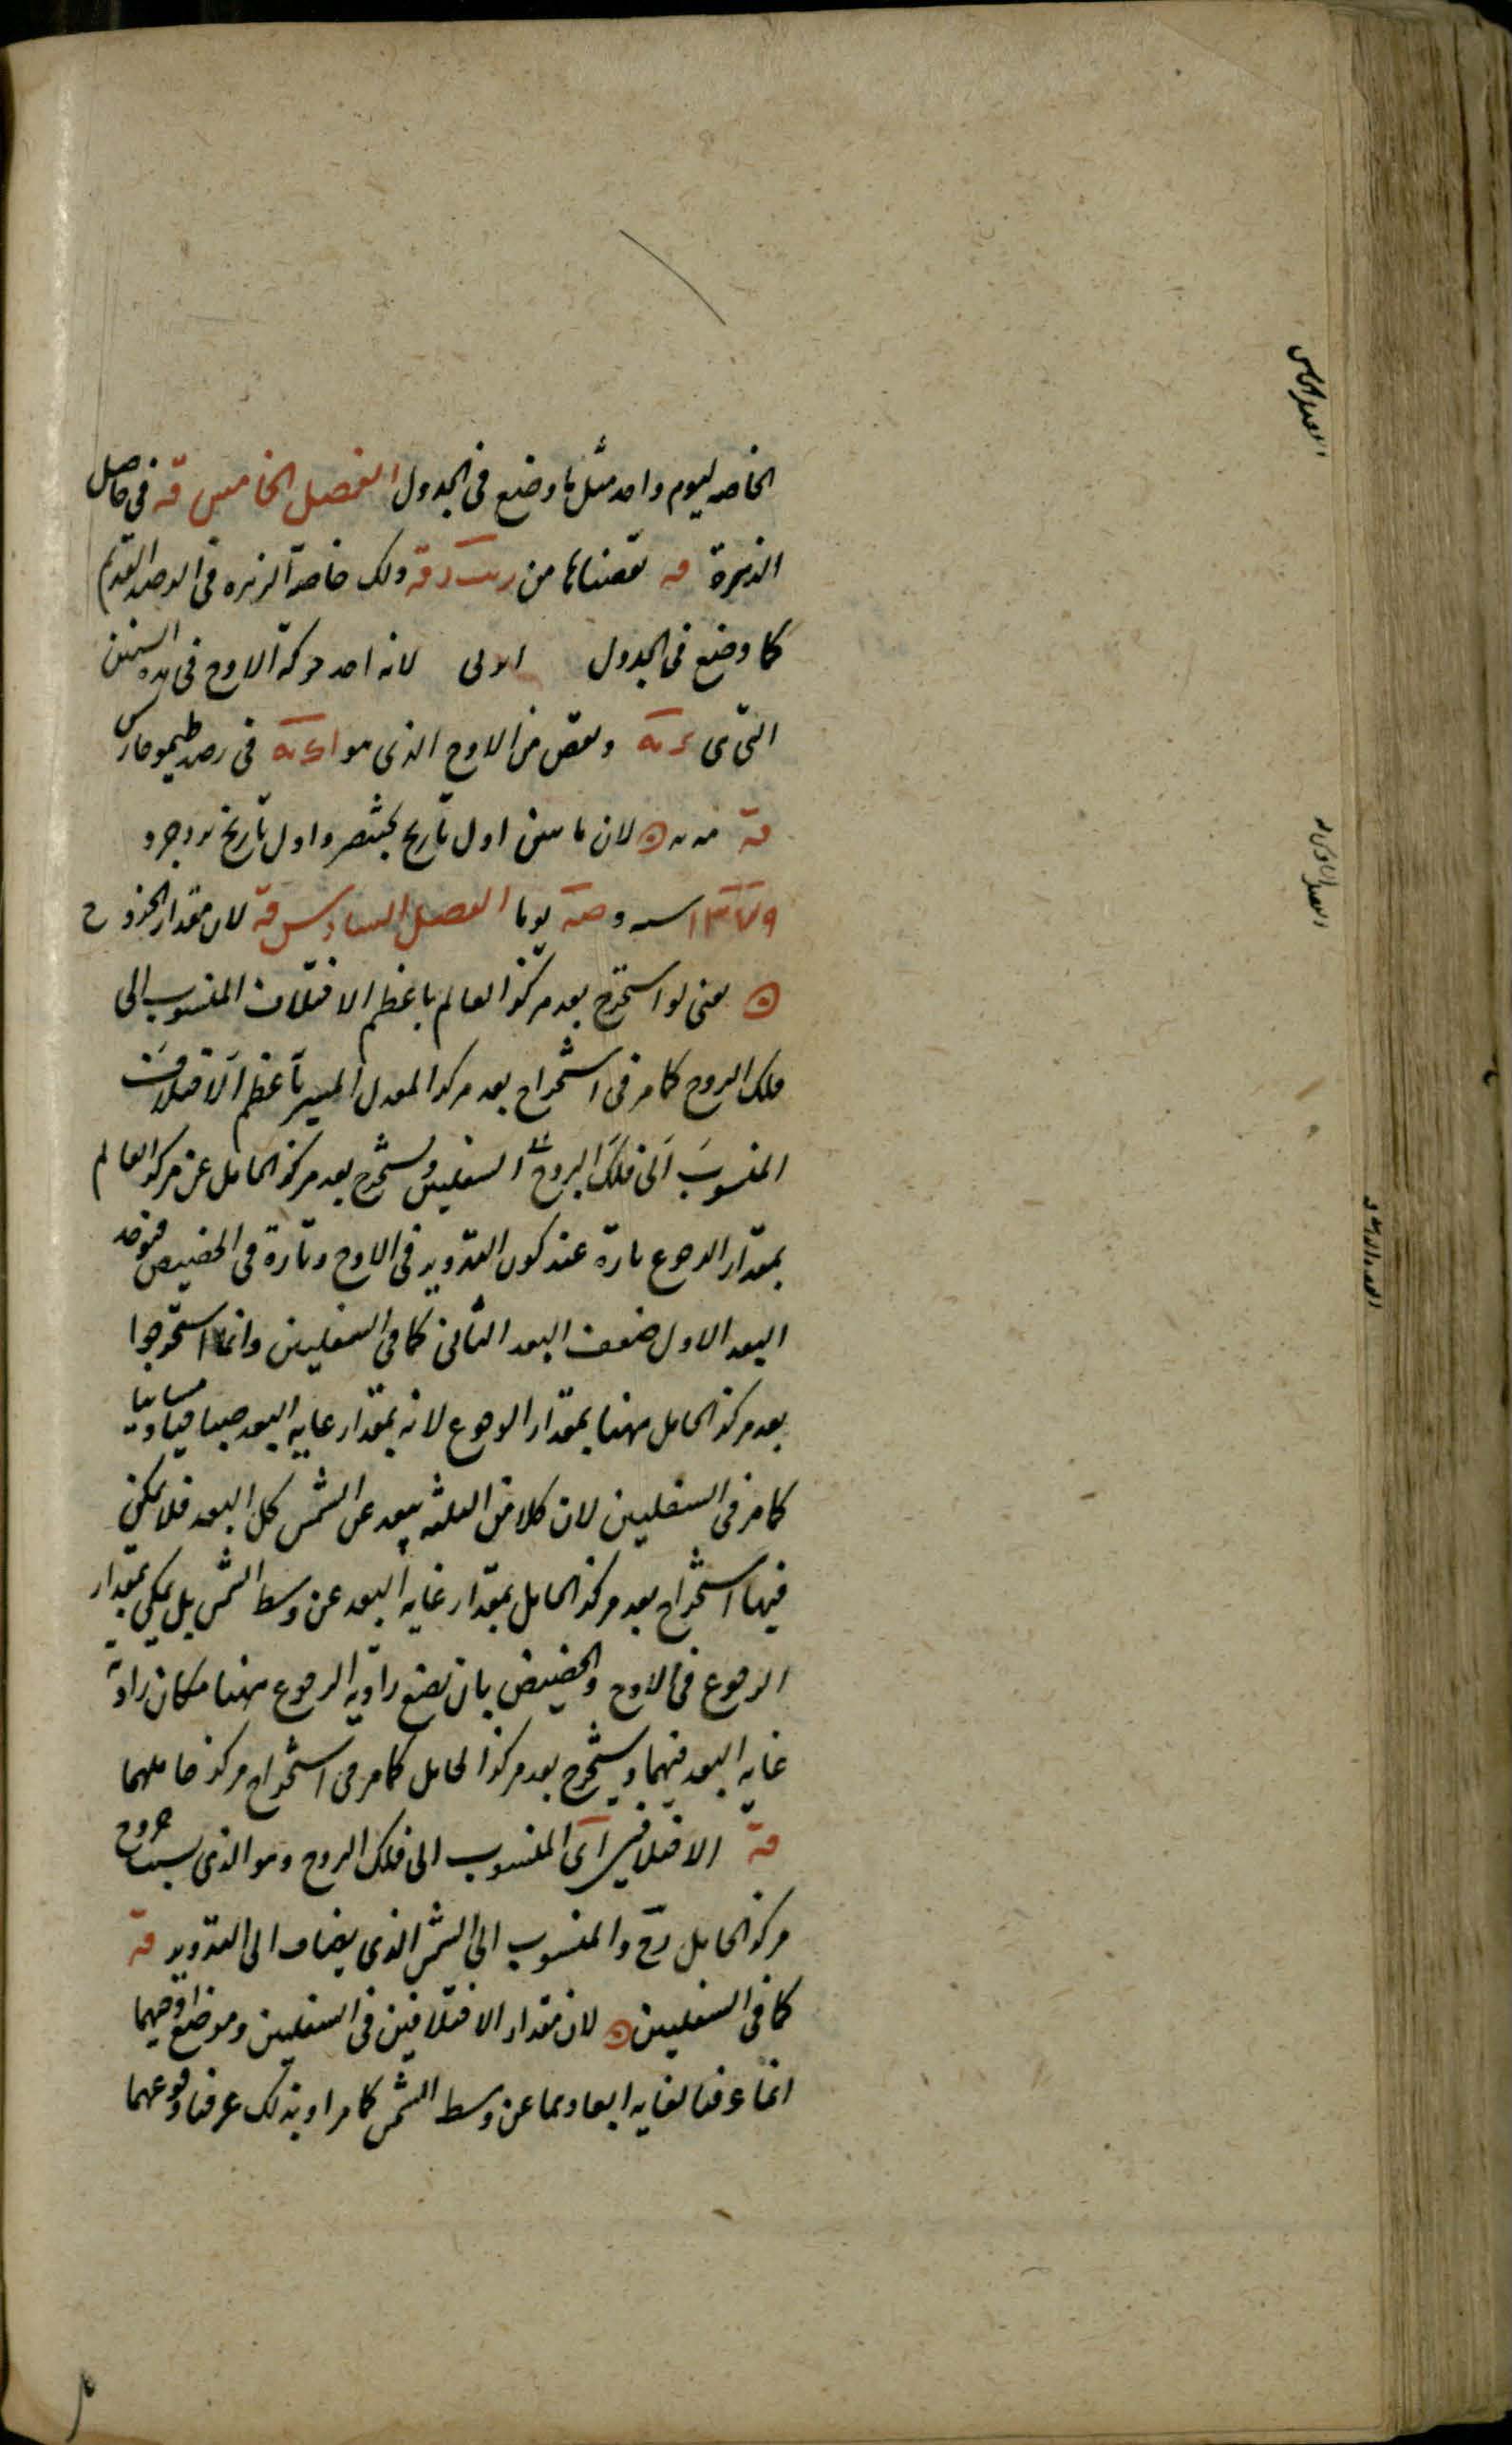 الخاصه ليوم واحد مثل ما وضع فى الجدول الفصل الخامس قه فى حاصل
الزهرة قه نقصناها من قه وتلك خاصة الزهره فى الرصد القديم
كما وضع فى الجدول الاولى لانه احد حركة الاوج فى هذه السنين
التى هى ونقص من الاوج الذى هو فى رصد طيموخارس
قه لان ما بين اول تاريخ بختنصر واول تاريخ يزدجرد
يوما الفصل السادس قه لان مقدار الخروج
يعنى لو استخرج بعد مركز العالم باعظم الاختلاف المنسوب الى
فلك البروج كما مر فى استخراج بعد مركز المعدل المسير باعظم الاختلاف
المنسوب الى فلك البروج السفليين ويستخرج بعد مركز الحامل عن مركز العالم
بمقدار الرجوع تارة عند كون التدوير فى الاوج وتارة فى الحضيض فيوجد
البعد الاول ضعف البعد الثانى كما فى السفليين وانما استخرجوا
بعد مركز الحامل ههنا بمقدار الرجوع لانه بمقدار غايه البعد صباحيا ومسائيا
كما مر فى السفليين لان كلا من الثلثه يبعد عن الشمس كل البعد فلا يمكن
فيها استخراج بعد مركز الحامل بمقدار غايه البعد عن وسط الشمس بل يمكن بمقدار
الرجوع فى الاوج والحضيض بان نضع زاويه الرجوع ههنا مكان زاوية
غايه البعد فيهما ويستخرج بعد مركز الحامل كما مر فى استخراج مركز حاملهما
قه الاختلافين اى المنسوب الى فلك البروج وهو الذى بسبب خروج
مركز الحامل والمنسوب الى الشمس الذى يضاف الى التدوير قه
كما فى السفليين لان مقدار الاختلافين فى السفليين وموضع اوجيهما
انما عرفنا لغايه ابعادهما عن وسط الشمس كما مر او بذلك عرفنا وقوعهما
الفصل الخامس
الفصل السادس